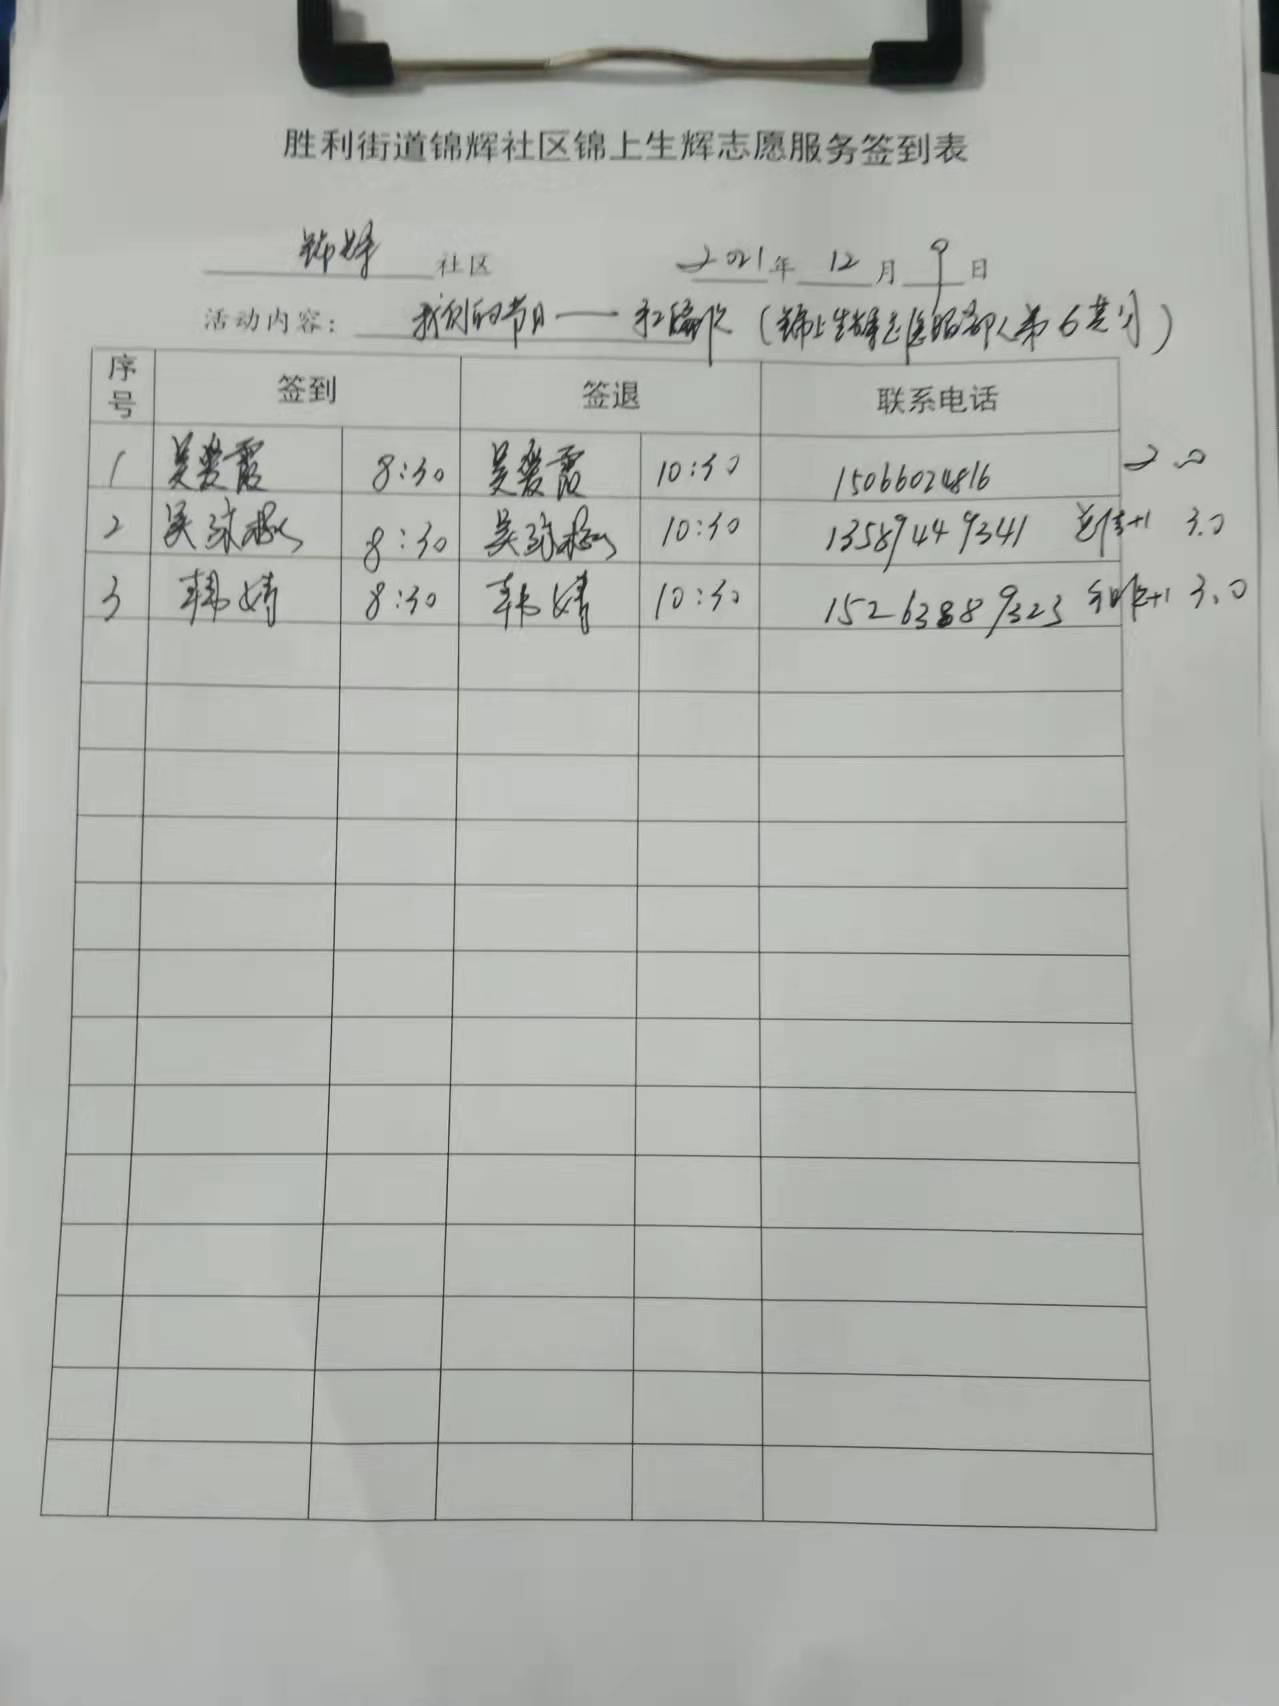 胜利街道锦辉社区锦上生辉志愿服务签到表
锦辉 社区 2021年 12月 9日
活动内容: 我们的节日——
序号 签到 签退 联系电话
1 吴爱霞 8:30 吴爱霞 10:30 15066024816 2.0
2 8:30 10:30 13589449341 +1 3.0
3 韩婧 8:30 韩婧 10:30 15263889323 +1 3.0